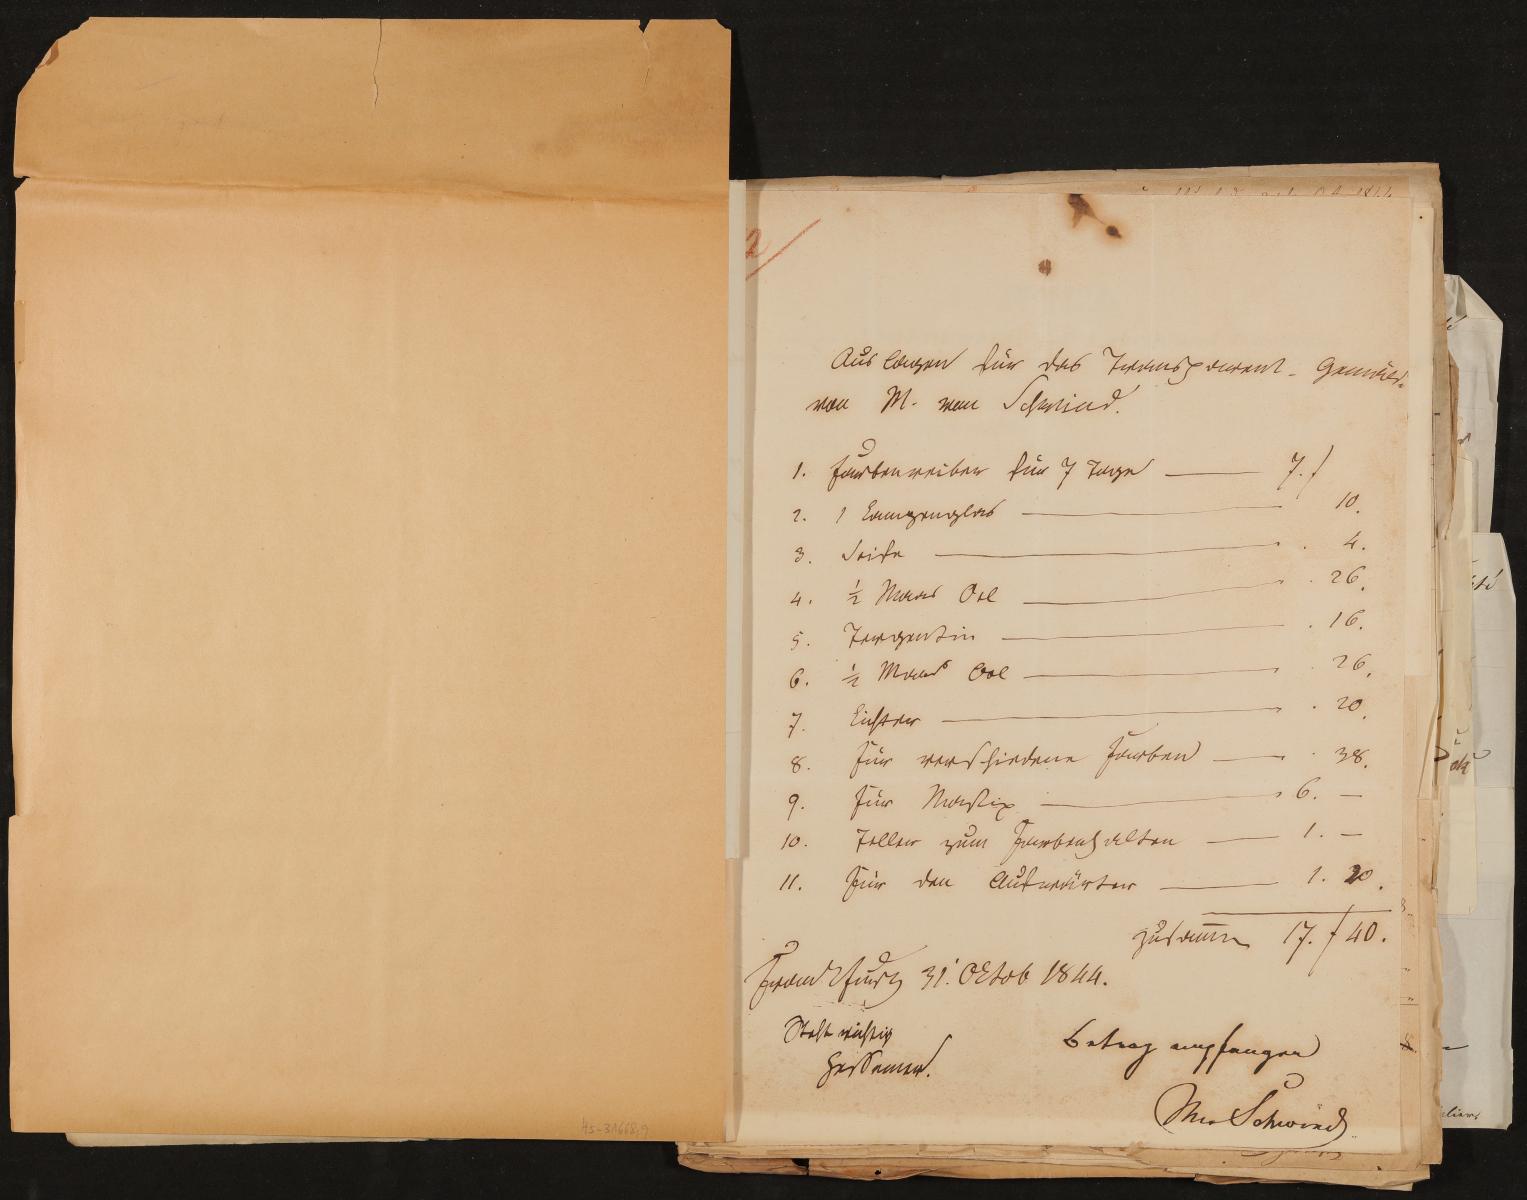 2
Auslagen für das Transparent-Gemälde
von M. von Schwind.
1. Farbenreiber für 7 Tage — 7. f
2. 1 Lampenglas — 10.
3. Seife — 4.
4. ½ Maas Oel — 26.
5. Terpentin — 16.
6. ½ Maas Oel — 26.
7. Lichter — 20.
8. Für verschiedene Farben — 38.
9. Für Mastix — 6. —
10. Teller zum Farbenhalten — 1. —
11. Für den Aufwärter — 1. 20.
zusamen 17. f 40.
Frankfurt 31. Oktob 1844.
Steht richtig
Hessemer.
Betrag empfangen
M v Schwind
Hs-31668,9